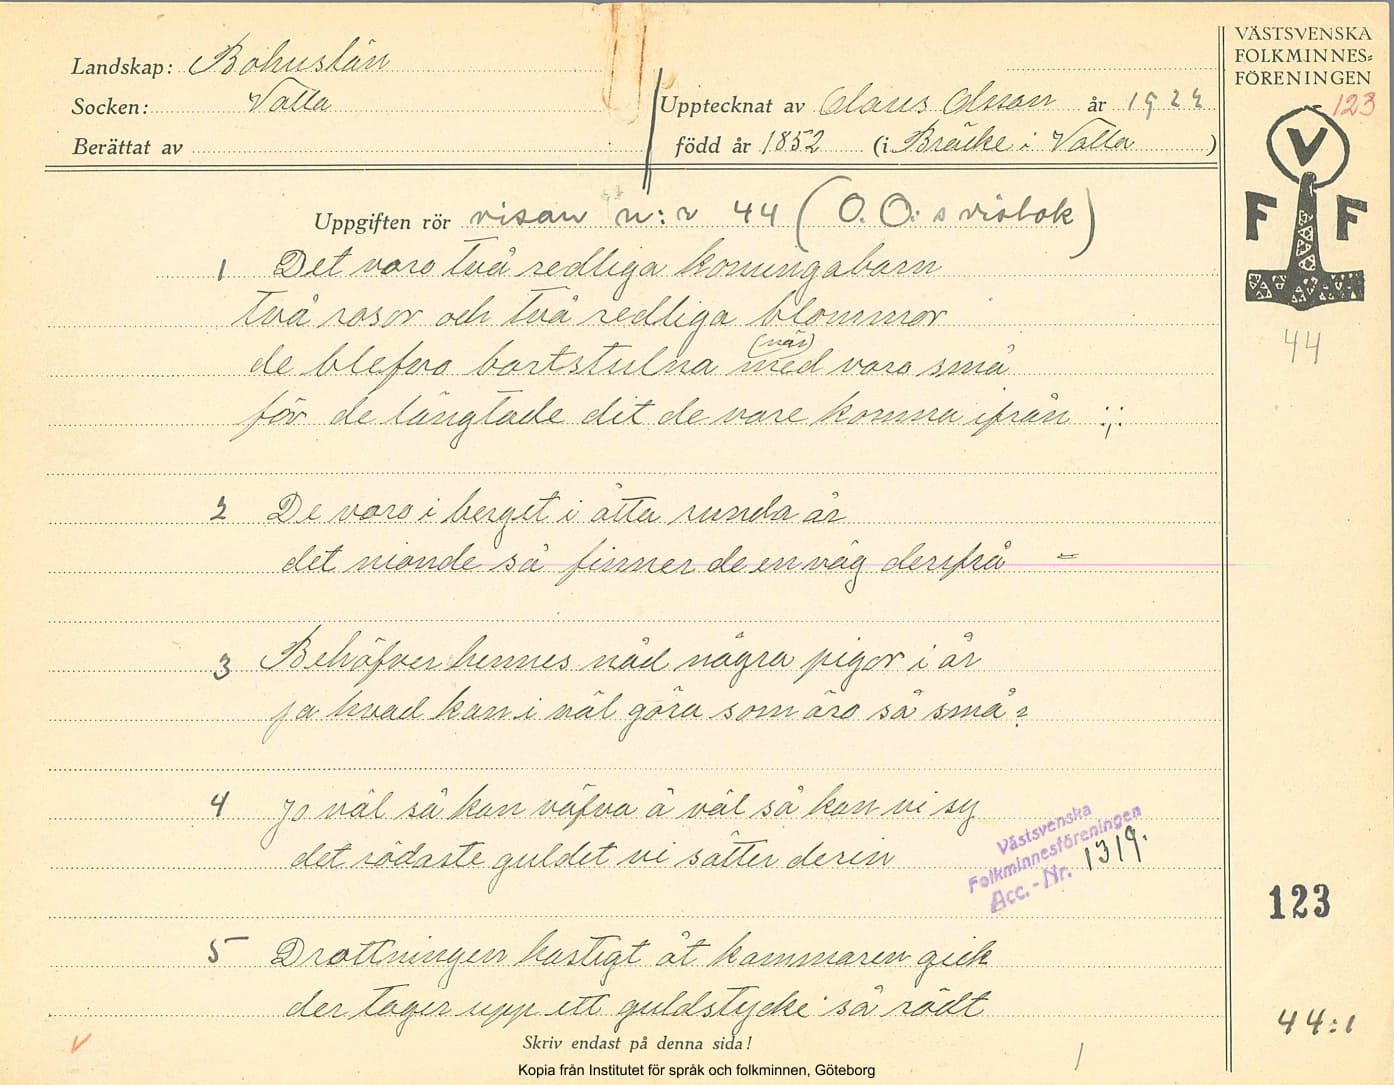 Landskap: Bohuslän
Socken: Valla
Berättat av
Upptecknat av Olaus Olsson år 1924
född år 1852 (i Bräcke i Valla)
VÄSTSVENSKA
FOLKMINNES=
FÖRENINGEN
123
V
F F
44
Uppgiften rör visan n:r 44 (O. O:s visbok)
1 Det voro två redliga konungabarn
två rosor och två redliga blommor
de blefvo bortstulna med (när) voro små
för de längtade dit de vore komna ifrån :,:
2 De voro i berget i åtta runda år
det nionde så finner de en väg derifrå =
3 Behöfver hennes nåd några pigor i år
ja hvad kan i väl göra som äro så små?
4 Jo väl så kan väfva å väl så kan vi sy
det rödaste guldet vi sätter derin
Västsvenska
Folkminnesföreningen
Acc.-Nr. 1319.
123
5 Drottningen hastigt åt kammaren gick
der tager upp ett guldstycke så rödt
44:1
Skriv endast på denna sida!
Kopia från Institutet för språk och folkminnen, Göteborg